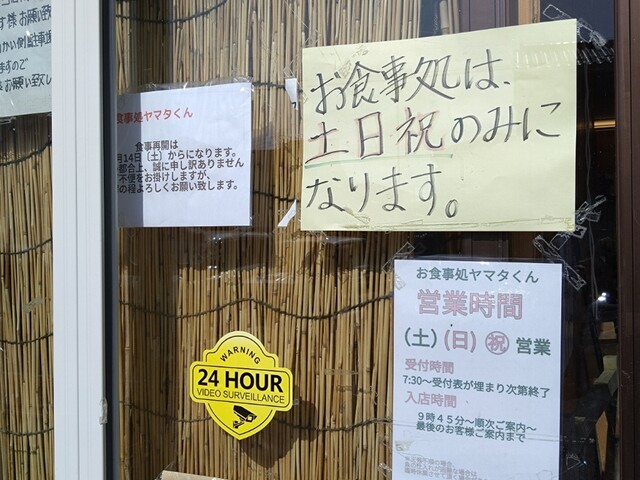 お願い致
お願い致し
お食事処は、
土日祝のみに
なります。
食事処ヤマタくん
食事再開は
月14日(土)からになります。
都合上、誠に申し訳ありません
不便をお掛けしますが、
の程よろしくお願い致します。
お食事処ヤマタくん
営業時間
(土)(日)㊗営業
受付時間
7:30～受付表が埋まり次第終了
入店時間
9時45分～順次ご案内～
最後のお客様ご案内まで
WARNING
24 HOUR
VIDEO SURVEILLANCE